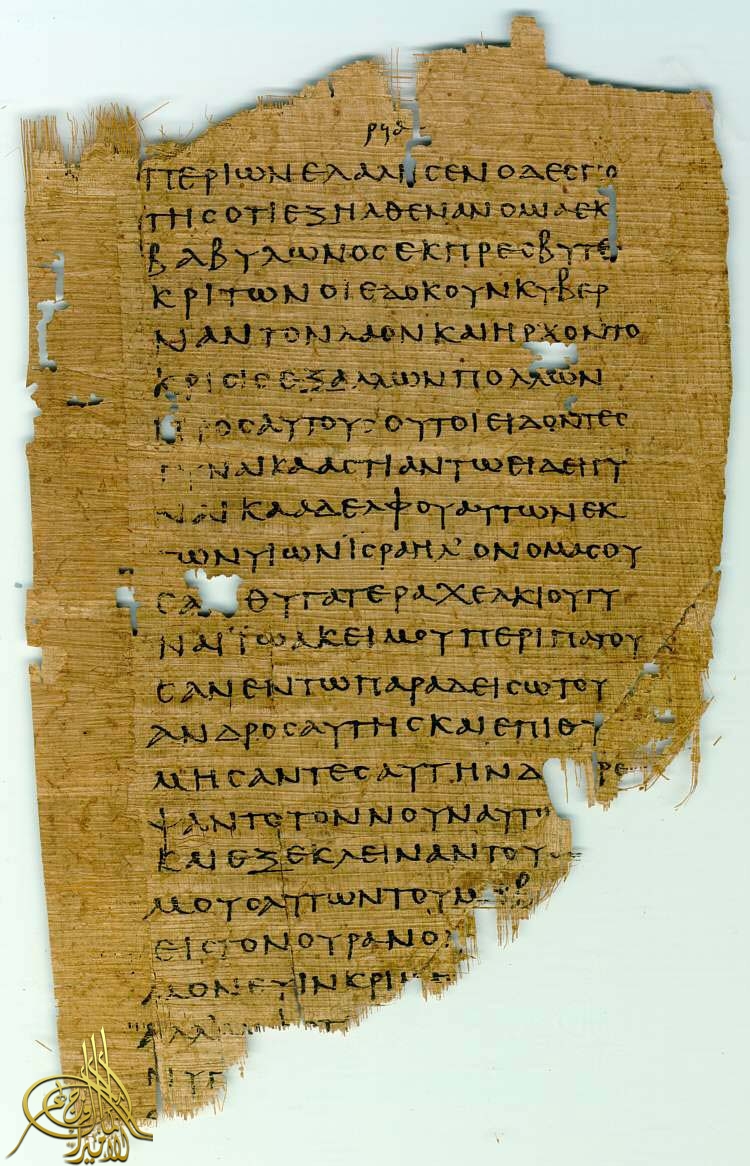 ρϟδ
ΠΕΡΙΩΝΕΛΑΛΗCΕΝΟΔΕCΠΟ
ΤΗCΟΤΙΕΞΗΛΘΕΝΑΝΟΜΙΑΕΚ
ΒΑΒΥΛΩΝΟCΕΚΠΡΕCΒΥΤΕ
ΚΡΙΤΩΝΟΙΕΔΟΚΟΥΝΚΥΒΕΡ
ΝΑΝΤΟΝΛΑΟΝΚΑΙΗΡΧΟΝΤΟ
ΚΡΙCΙCΕΞΑΛΛΩΝΠΟΛΛΩΝ
ΠΡΟCΑΥΤΟΥCΟΥΤΟΙΕΙΔΟΝΤΕC
ΓΥΝΑΙΚΑΑCΤΙΑΝΤΩΕΙΔΕΙΓΥ
ΝΑΙΚΑΑΔΕΛΦΟΥΑΥΤΩΝΕΚ
ΤΩΝΥΙΩΝΙCΡΑΗΛ᾽ΟΝΟΜΑCΟΥ
CΑΝΘΥΓΑΤΕΡΑΧΕΛΚΙΟΥΓΥ
ΝΑΙΪΩΑΚΕΙΜΟΥΠΕΡΙΠΑΤΟΥ
CΑΝΕΝΤΩΠΑΡΑΔΕΙCΩΤΟΥ
ΑΝΔΡΟCΑΥΤΗCΚΑΙΕΠΙΘΥ
ΜΗCΑΝΤΕCΑΥΤΗΝΔΡΕ
ΨΑΝΤΟΤΟΝΝΟΥΝΑΥΤ
ΚΑΙΕΞΕΚΛΕΙΝΑΝΤΟΥ
ΜΟΥCΑΥΤΩΝΤΟΥΜΗΒ
ΕΙCΤΟΝΟΥΡΑΝΟ
ΜΟΝΕΥΙΝΚΡΙ